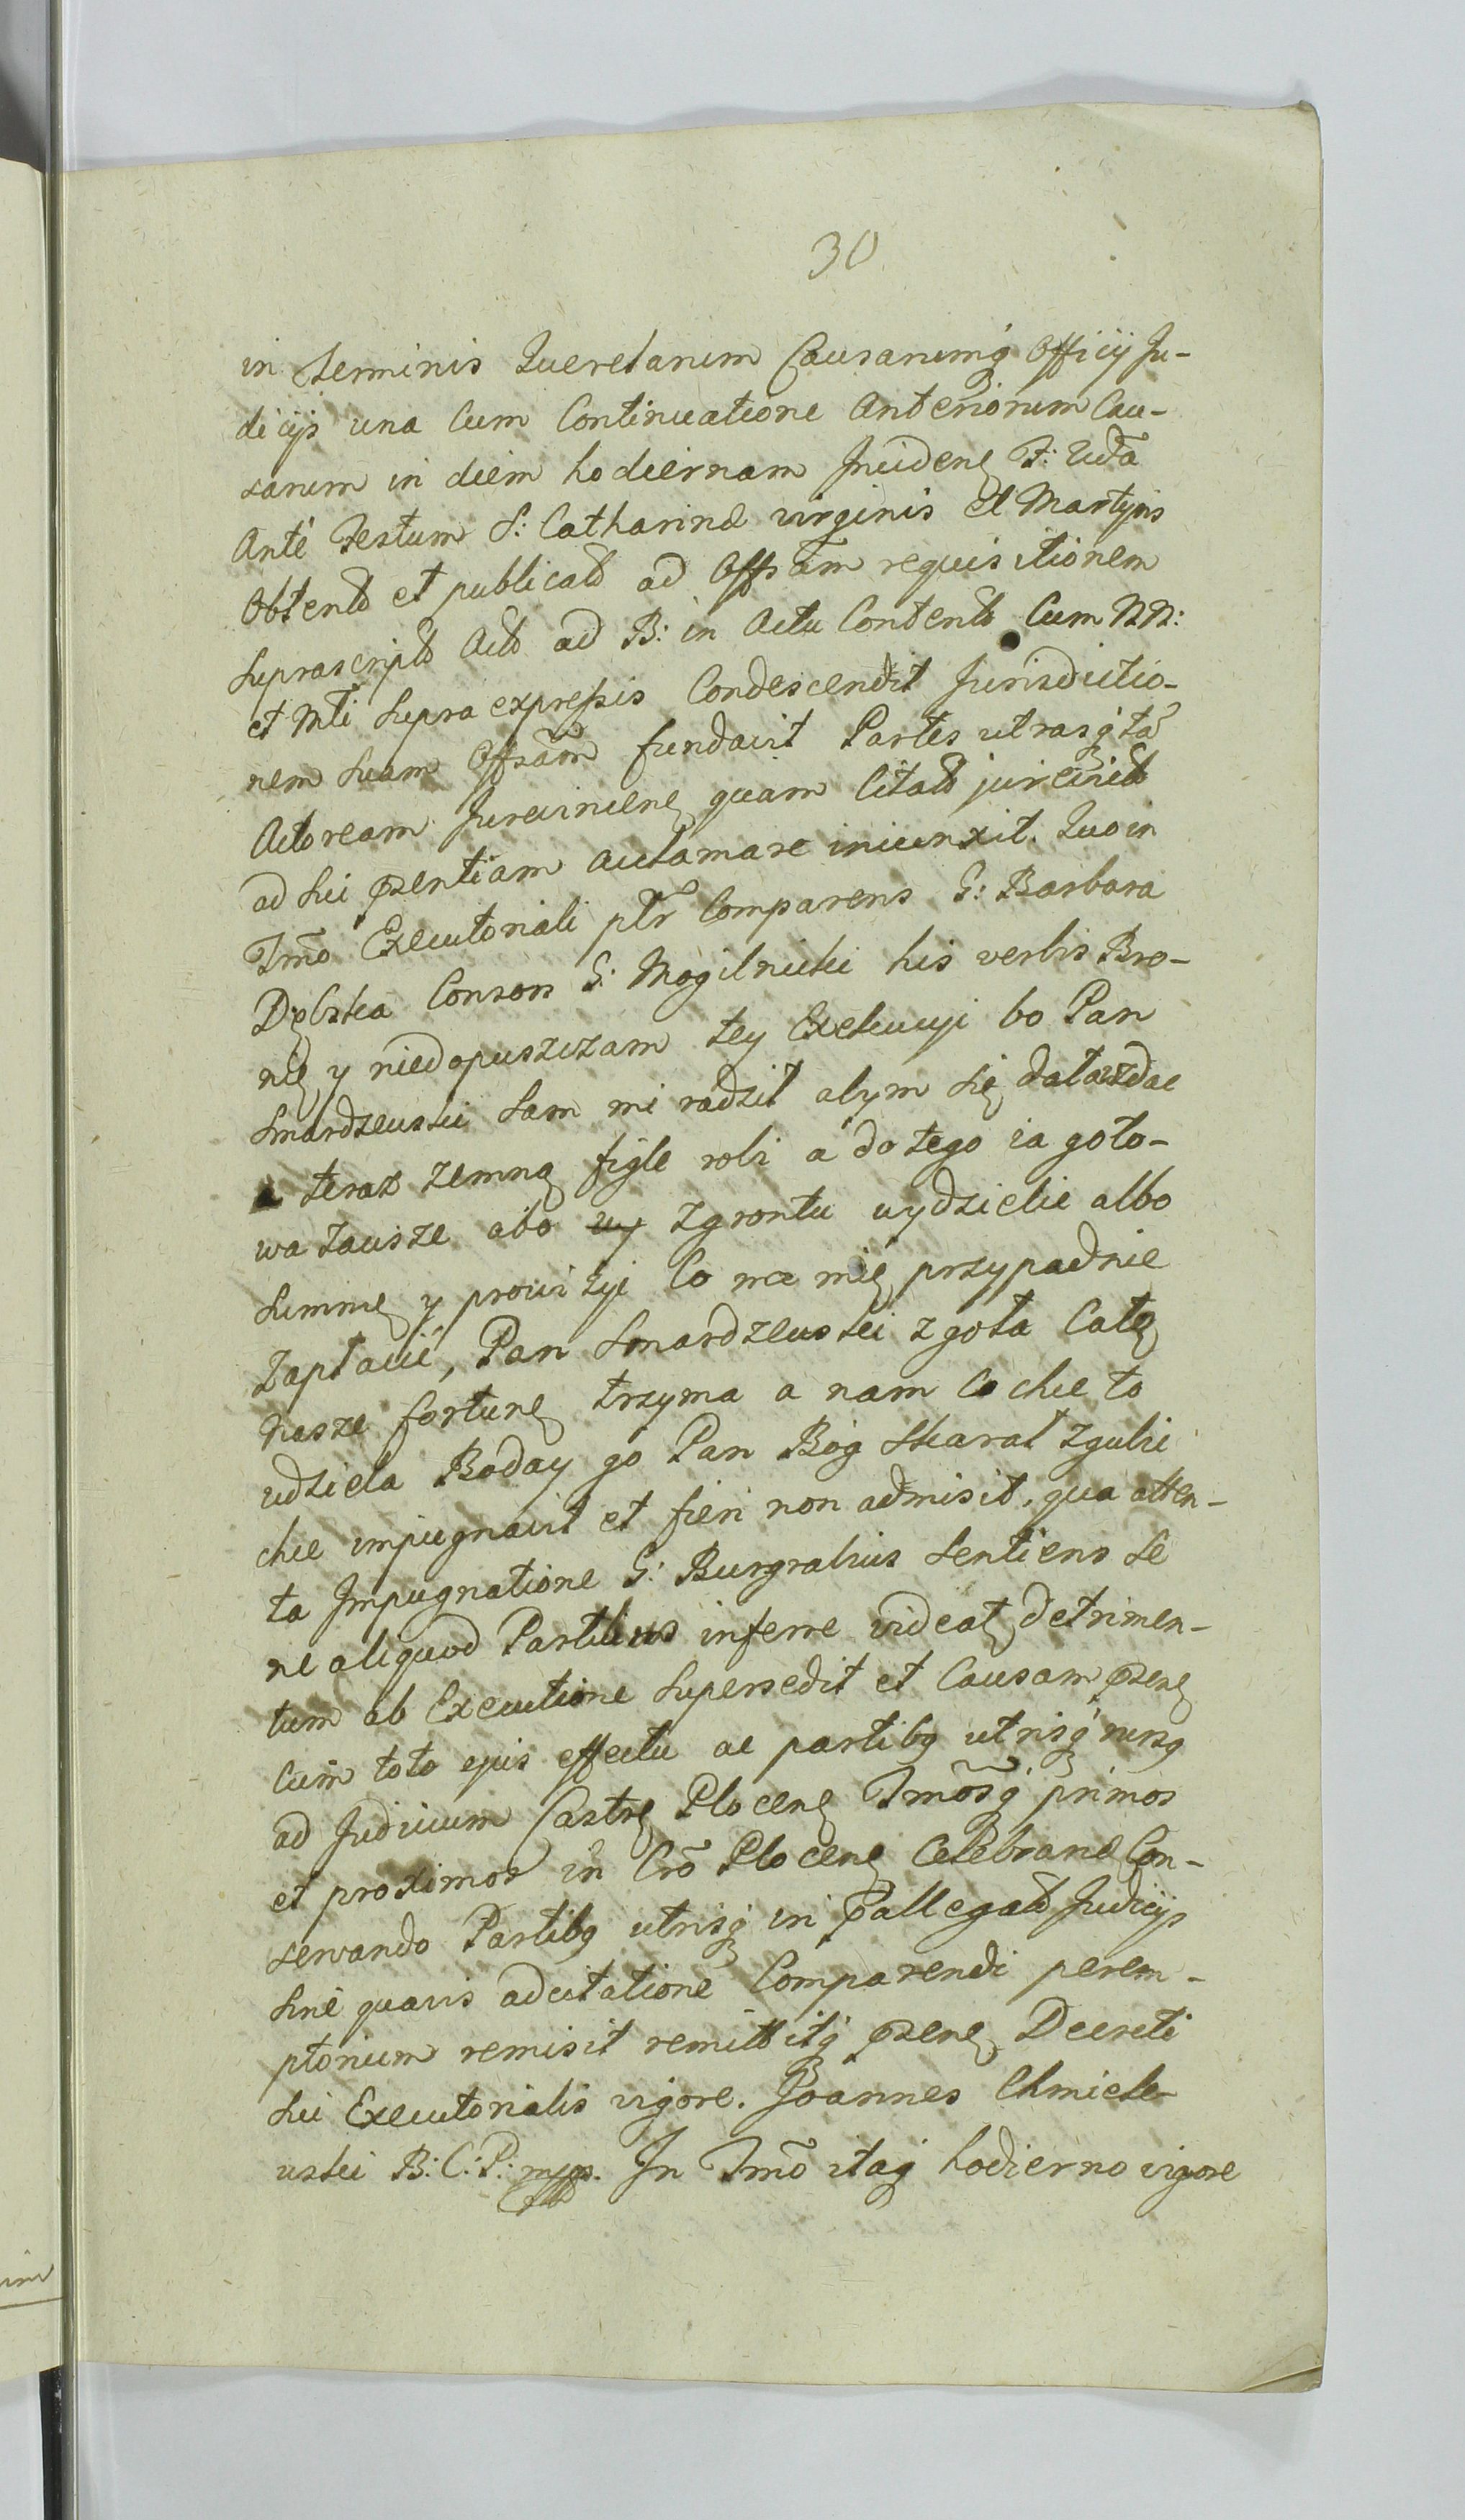 30
in Terminis Querelarum Causarumq́ Officij Ju-
dicijs una Cum Continuatione Anteriorum Cau-
sarum in diem hodiernam Inciden. F: 2da
Ante Festum S: Catharinæ virginis et Martyris
Obtent et publicat ad Offsam requisitionem
Suprascript Act ad B: in Actu Content Cum NN:
et Mti Supra expressis Condescendit Jurisdictio-
nem Suam Offsam fundavit Partes utrasq́ ta
Actoream Jurevincen quam Citat jurevict
ad Sui pzentiam acclamare iniunxit. Quo in
Tmo Executoriali plr Comparens G: Barbara
Dębska Consors G: Mogilnicki his verbis Bro-
nię y niedopuszczam tey Exekucyi bo Pan
Smardzewski Sam mi radził abym Się dała zdac
a teraz zemną figle robi a do tego ia goto-
wa zawsze abo wy zgrontu wydzielic albo
Summę y prowizyi Co na mię przypadnie
Zapłacić, Pan Smardzewski zgoła Całę
nasze fortunę trzyma a nam Co chce to
udziela Boday go Pan Bóg Skarał zgubic
chce impugnavit et fieri non admisit, qua atten-
ta Impugnatione G: Burgrabius Sentiens Se
ne aliquod Partibus inferre videat detrimen-
tum ab Executione Supersedit et Causam pzen
Cum toto ejus effectu ac partibq utrisq́ rursq
ad Judicium Castr Plocen Tmosq́ primos
et proximos in Cro Plocen Celebran Con-
servando Partibq utrisq́ in pallegat Judicijs
Sine quavis adcitatione Comparendi perem-
ptorium remisit remittitq́ pzen Decreti
Sui Executorialis vigore. Joannes Chmiele-
wski B: C: P: mpp. In Tmo itaq́ hodierno vigore